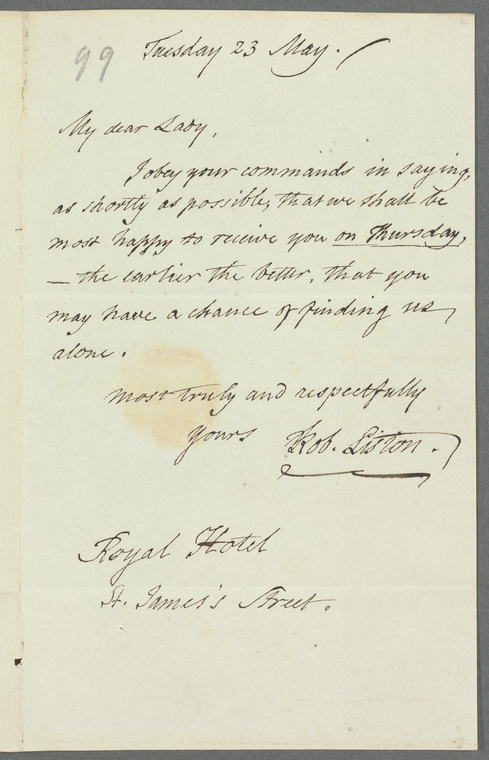 99
Tuesday 23 May.
My dear Lady,
I obey your commands in saying,
as shortly as possible, that we shall be
most happy to receive you on Thursday,
— the earlier the better, that you
may have a chance of finding us
alone.
most truly and respectfully
yours Rob. Liston.
Royal Hotel
St. James's Street.